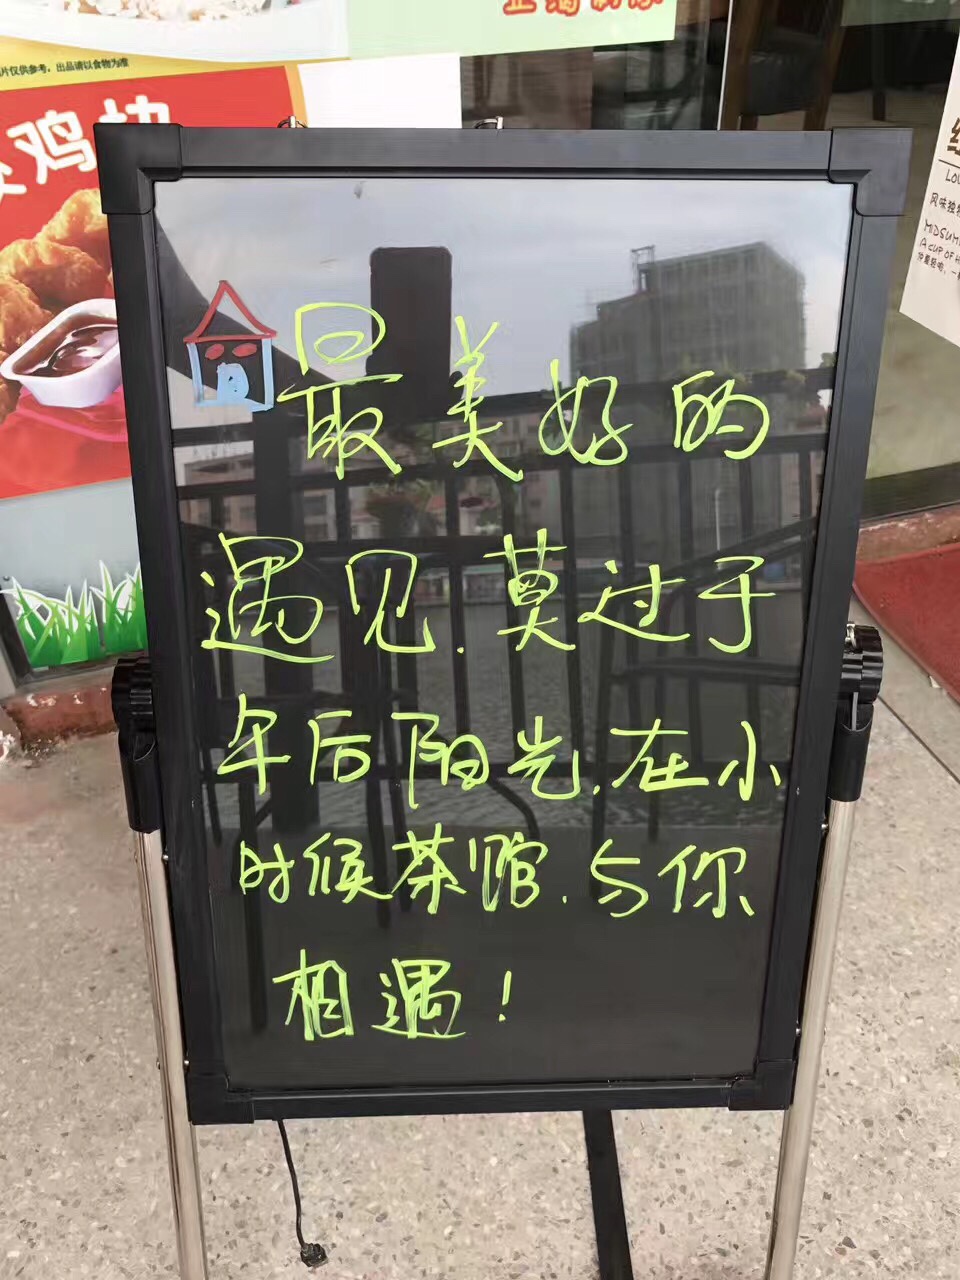 片仅供参考，出品请以食物为准
鸡块
最美好的
遇见.莫过于
午后阳光.在小
时候茶馆.与你
相遇！
LOU
风味独
MIDSUM
A CUP OF H